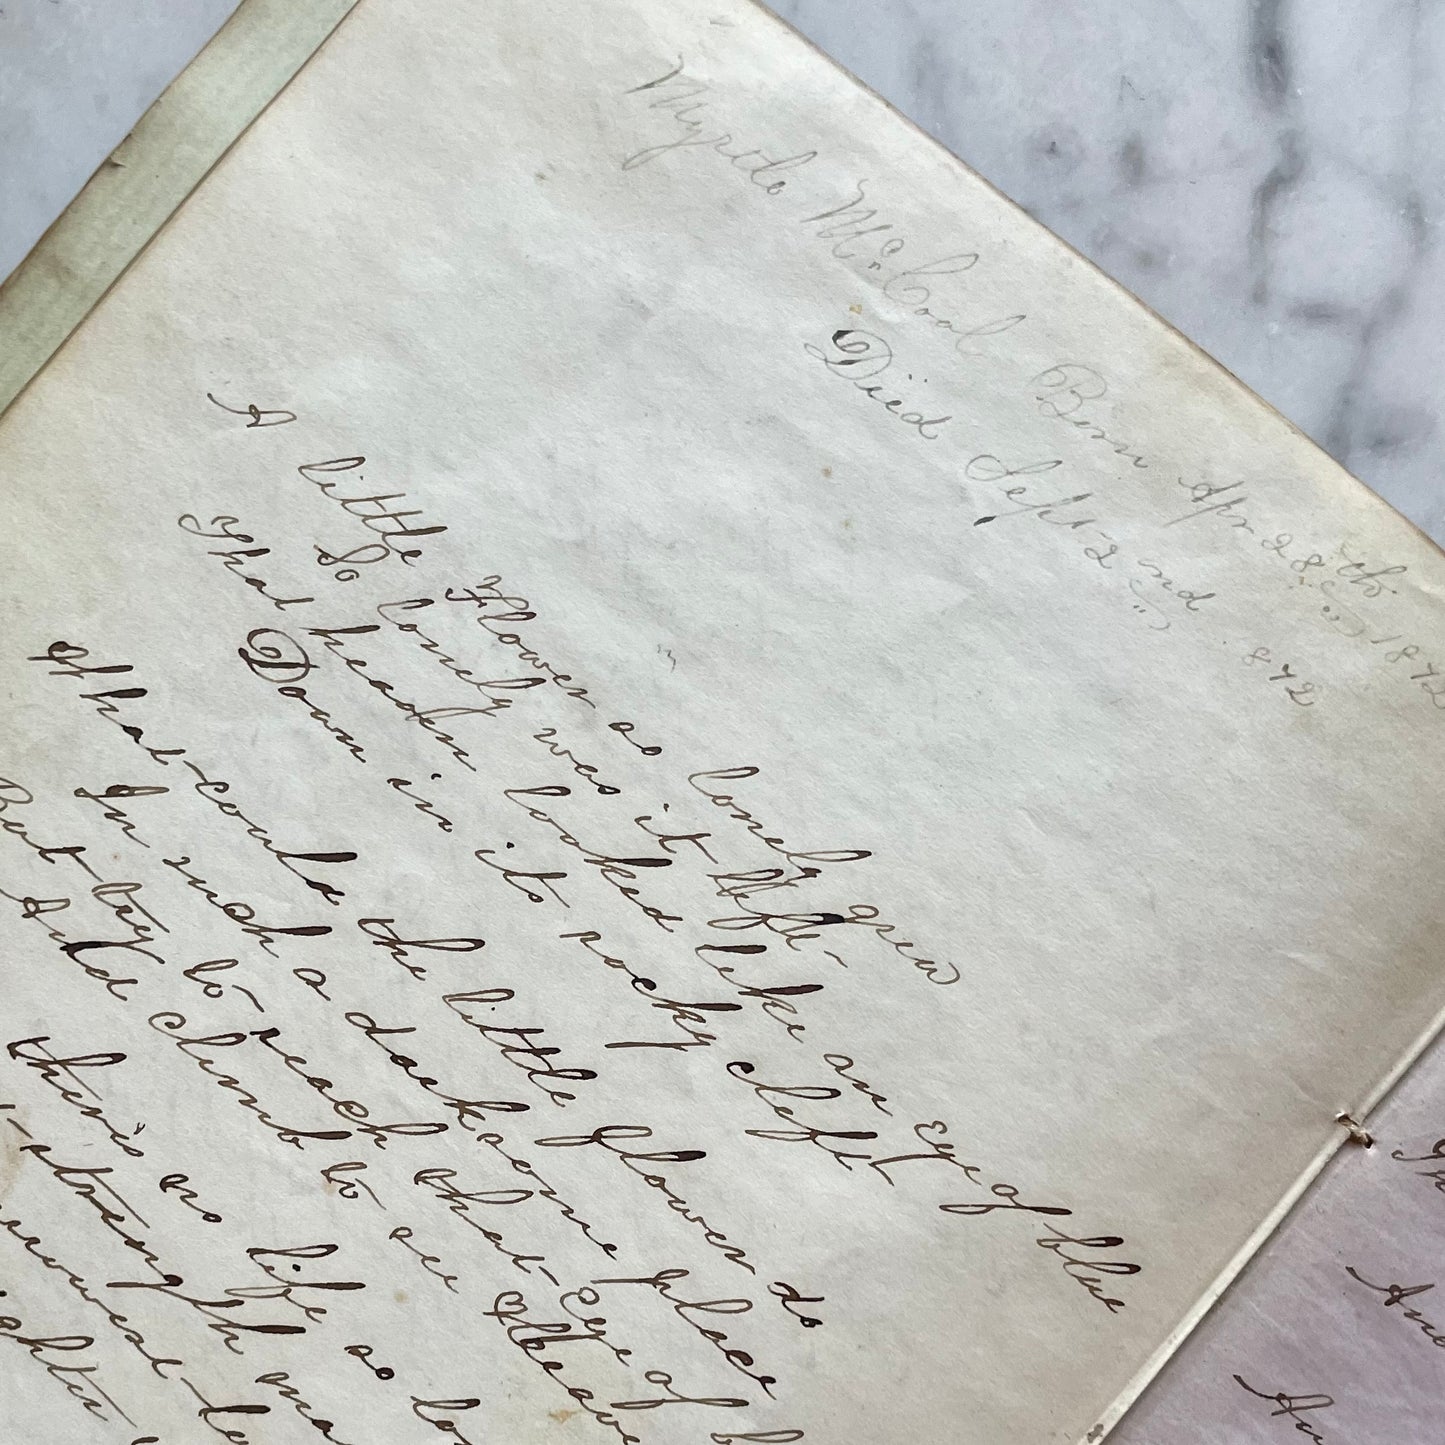 Myrtle McCool Born Apr 28th 1872
Died Sept 2nd 1872
A little Flower so lonely grew
So lonely was it left
That heaven looked like an Eye of blue
Down in its rocky cleft
What could the little flower do
In such a darksome place
But try to reach that Eye of b
And climb to see Heave
there's no life so lo
strength ma
lowest lo
And